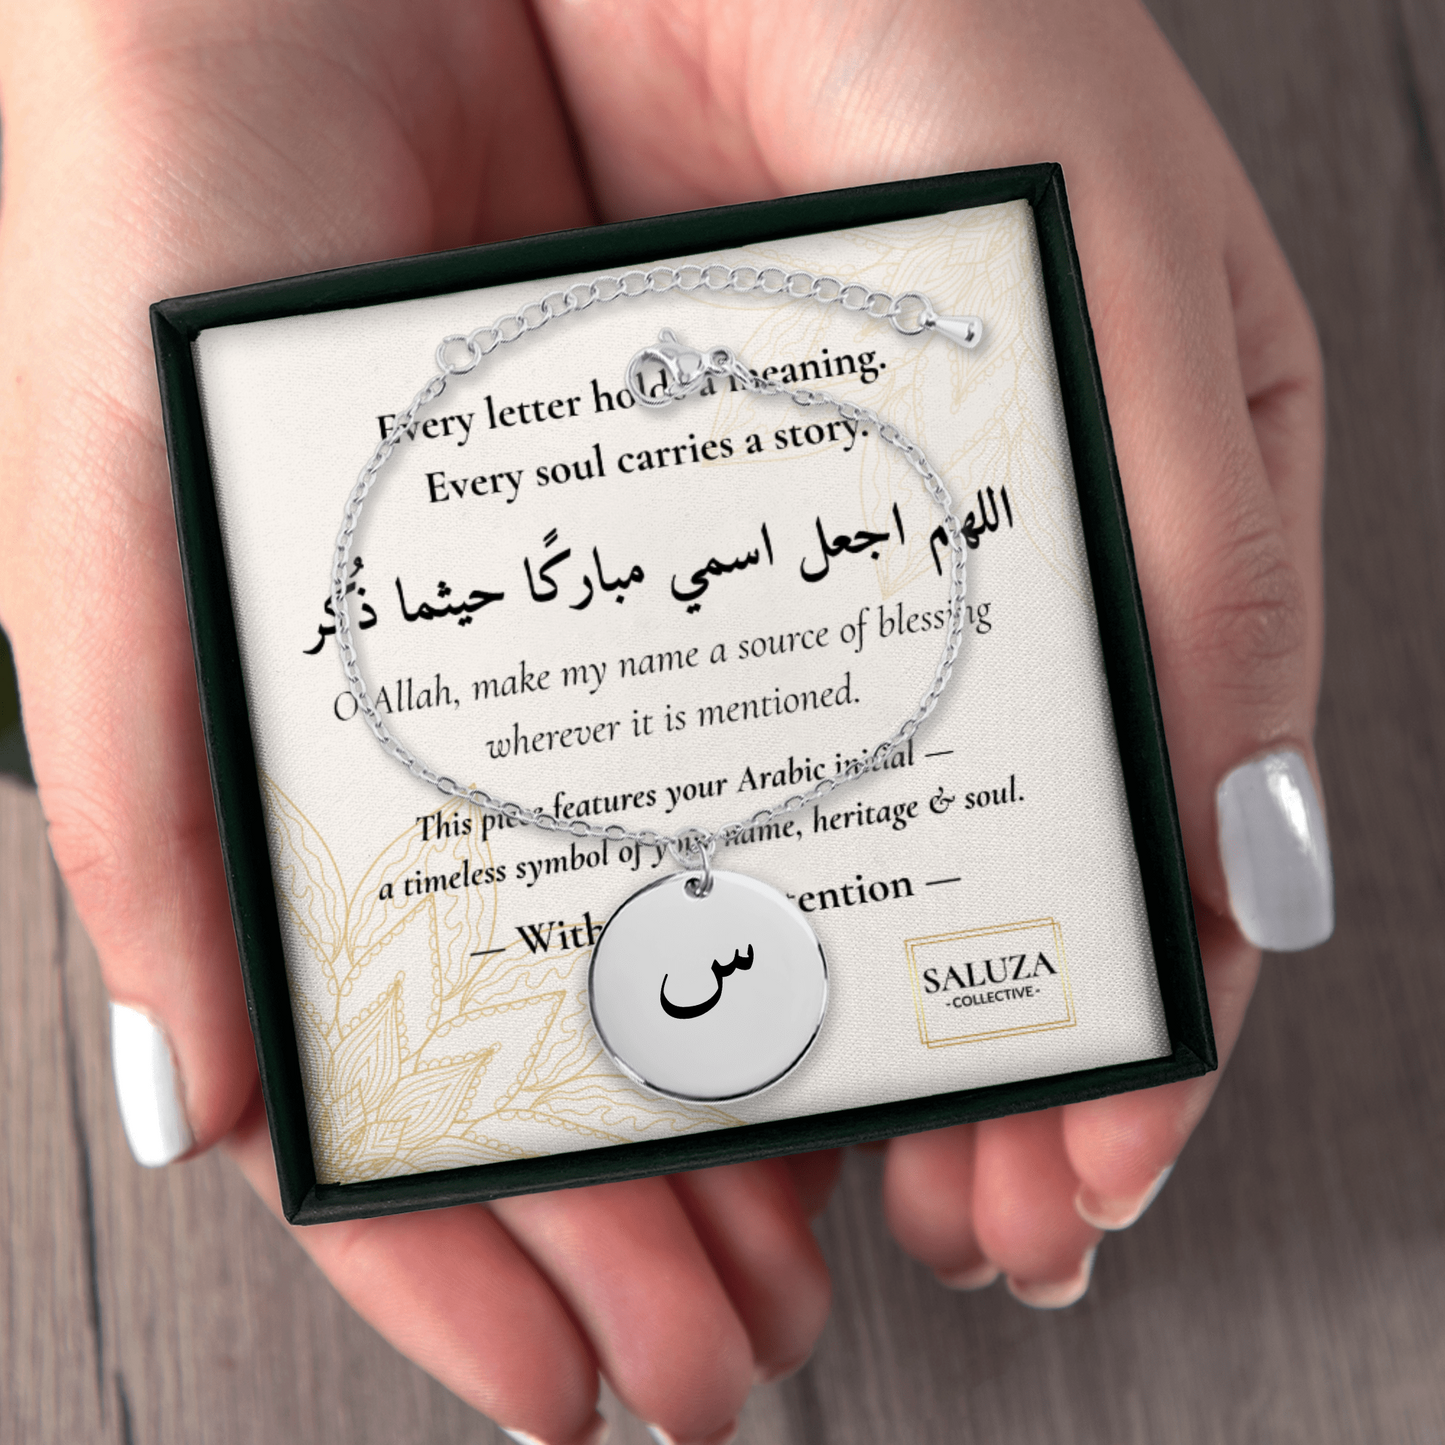 Every letter holds a meaning.
Every soul carries a story.
اللهم اجعل اسمي مباركًا حيثما ذُكر
O Allah, make my name a source of blessing
wherever it is mentioned.
This piece features your Arabic initial —
a timeless symbol of your name, heritage & soul.
— With tention —
س
SALUZA
-COLLECTIVE-